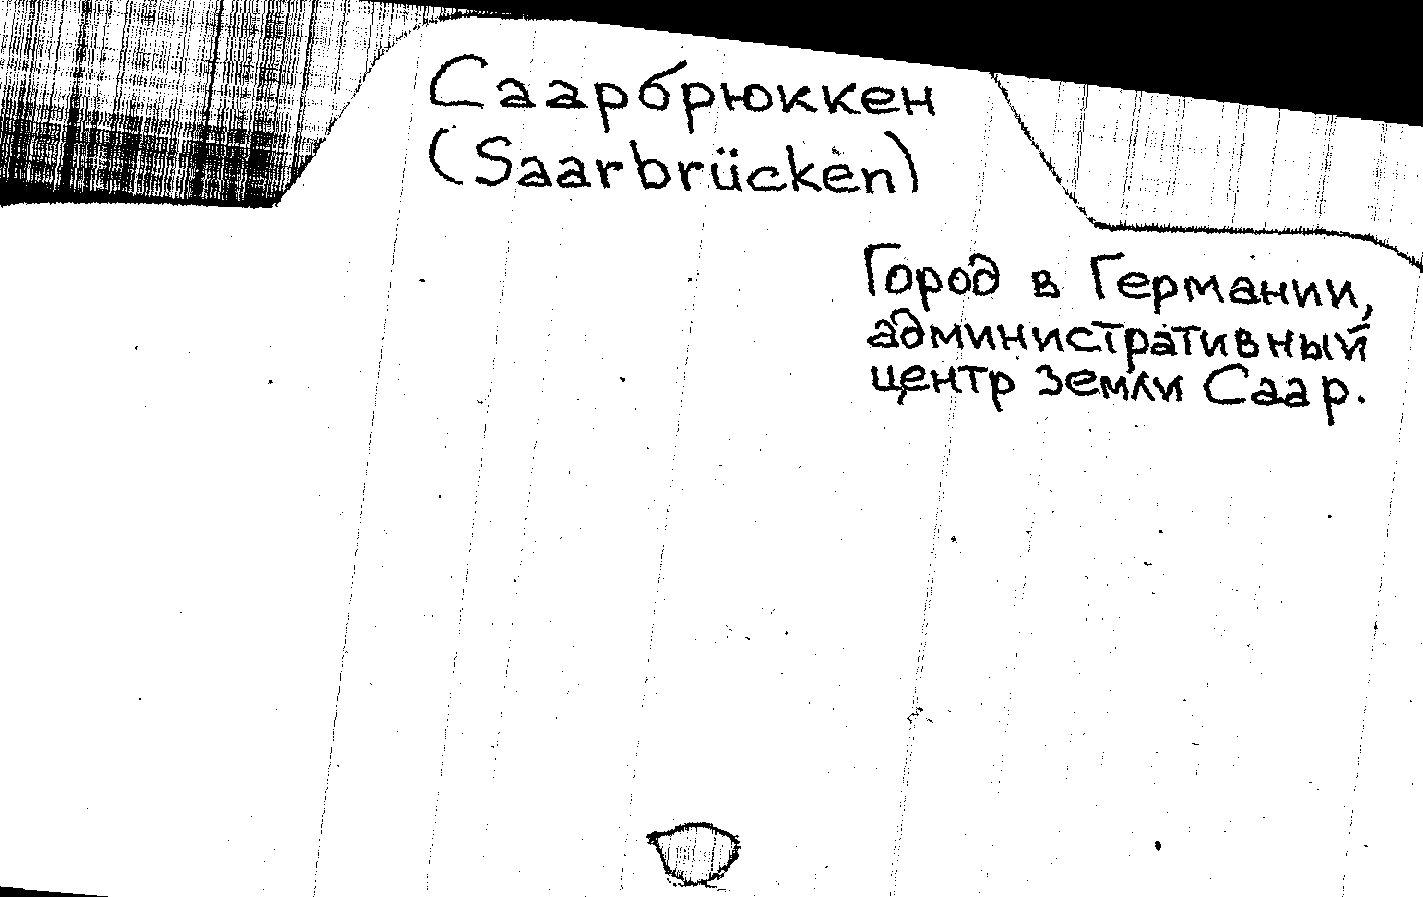 Саарбрюккен
(Saarbrücken)
Город в Германии,
административный
центр земли Саар.